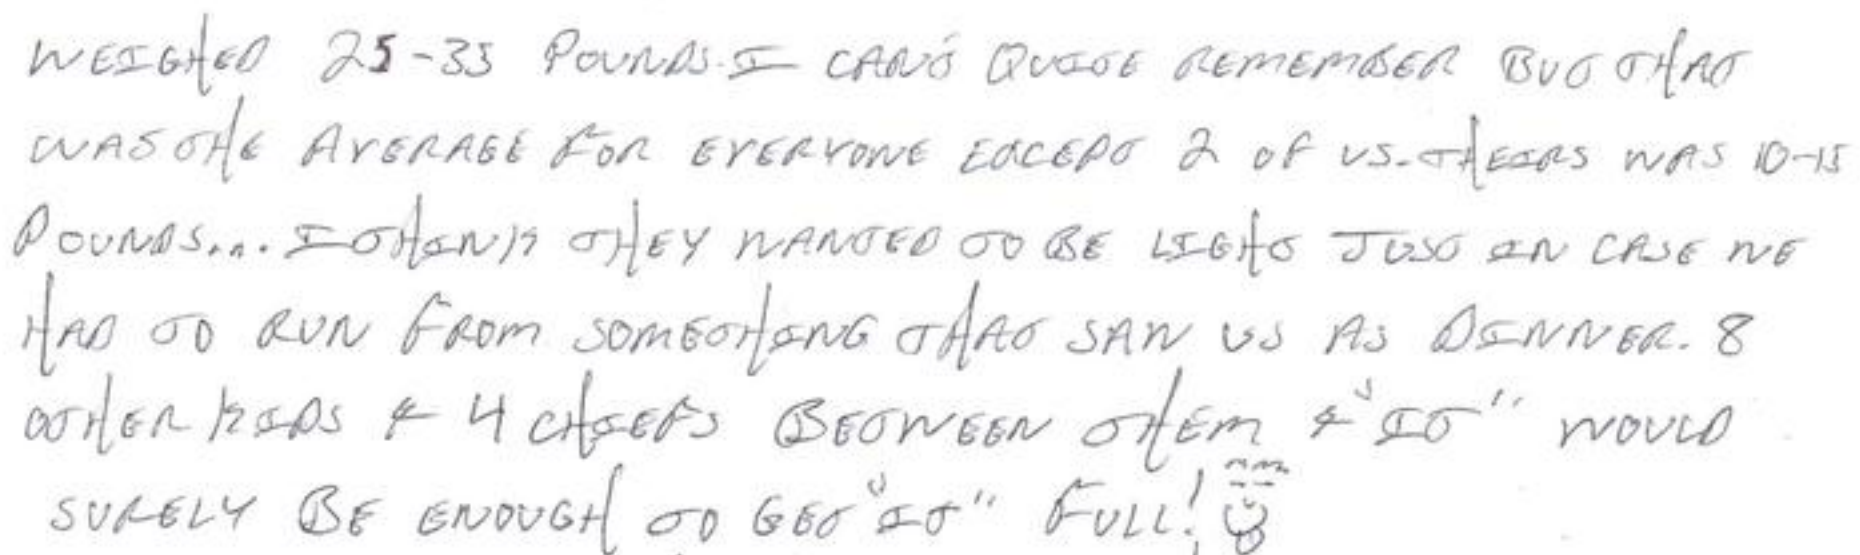 WEIGHED 25-35 POUNDS. I CAN'T QUITE REMEMBER BUT THAT
WAS THE AVERAGE FOR EVERYONE EXCEPT 2 OF US. THEIRS WAS 10-15
POUNDS... I THINK THEY WANTED TO BE LIGHT JUST IN CASE WE
HAD TO RUN FROM SOMETHING THAT SAW US AS DINNER. 8
OTHER KIDS & 4 CHIEFS BETWEEN THEM & "IT" WOULD
SURELY BE ENOUGH TO GET "IT" FULL!